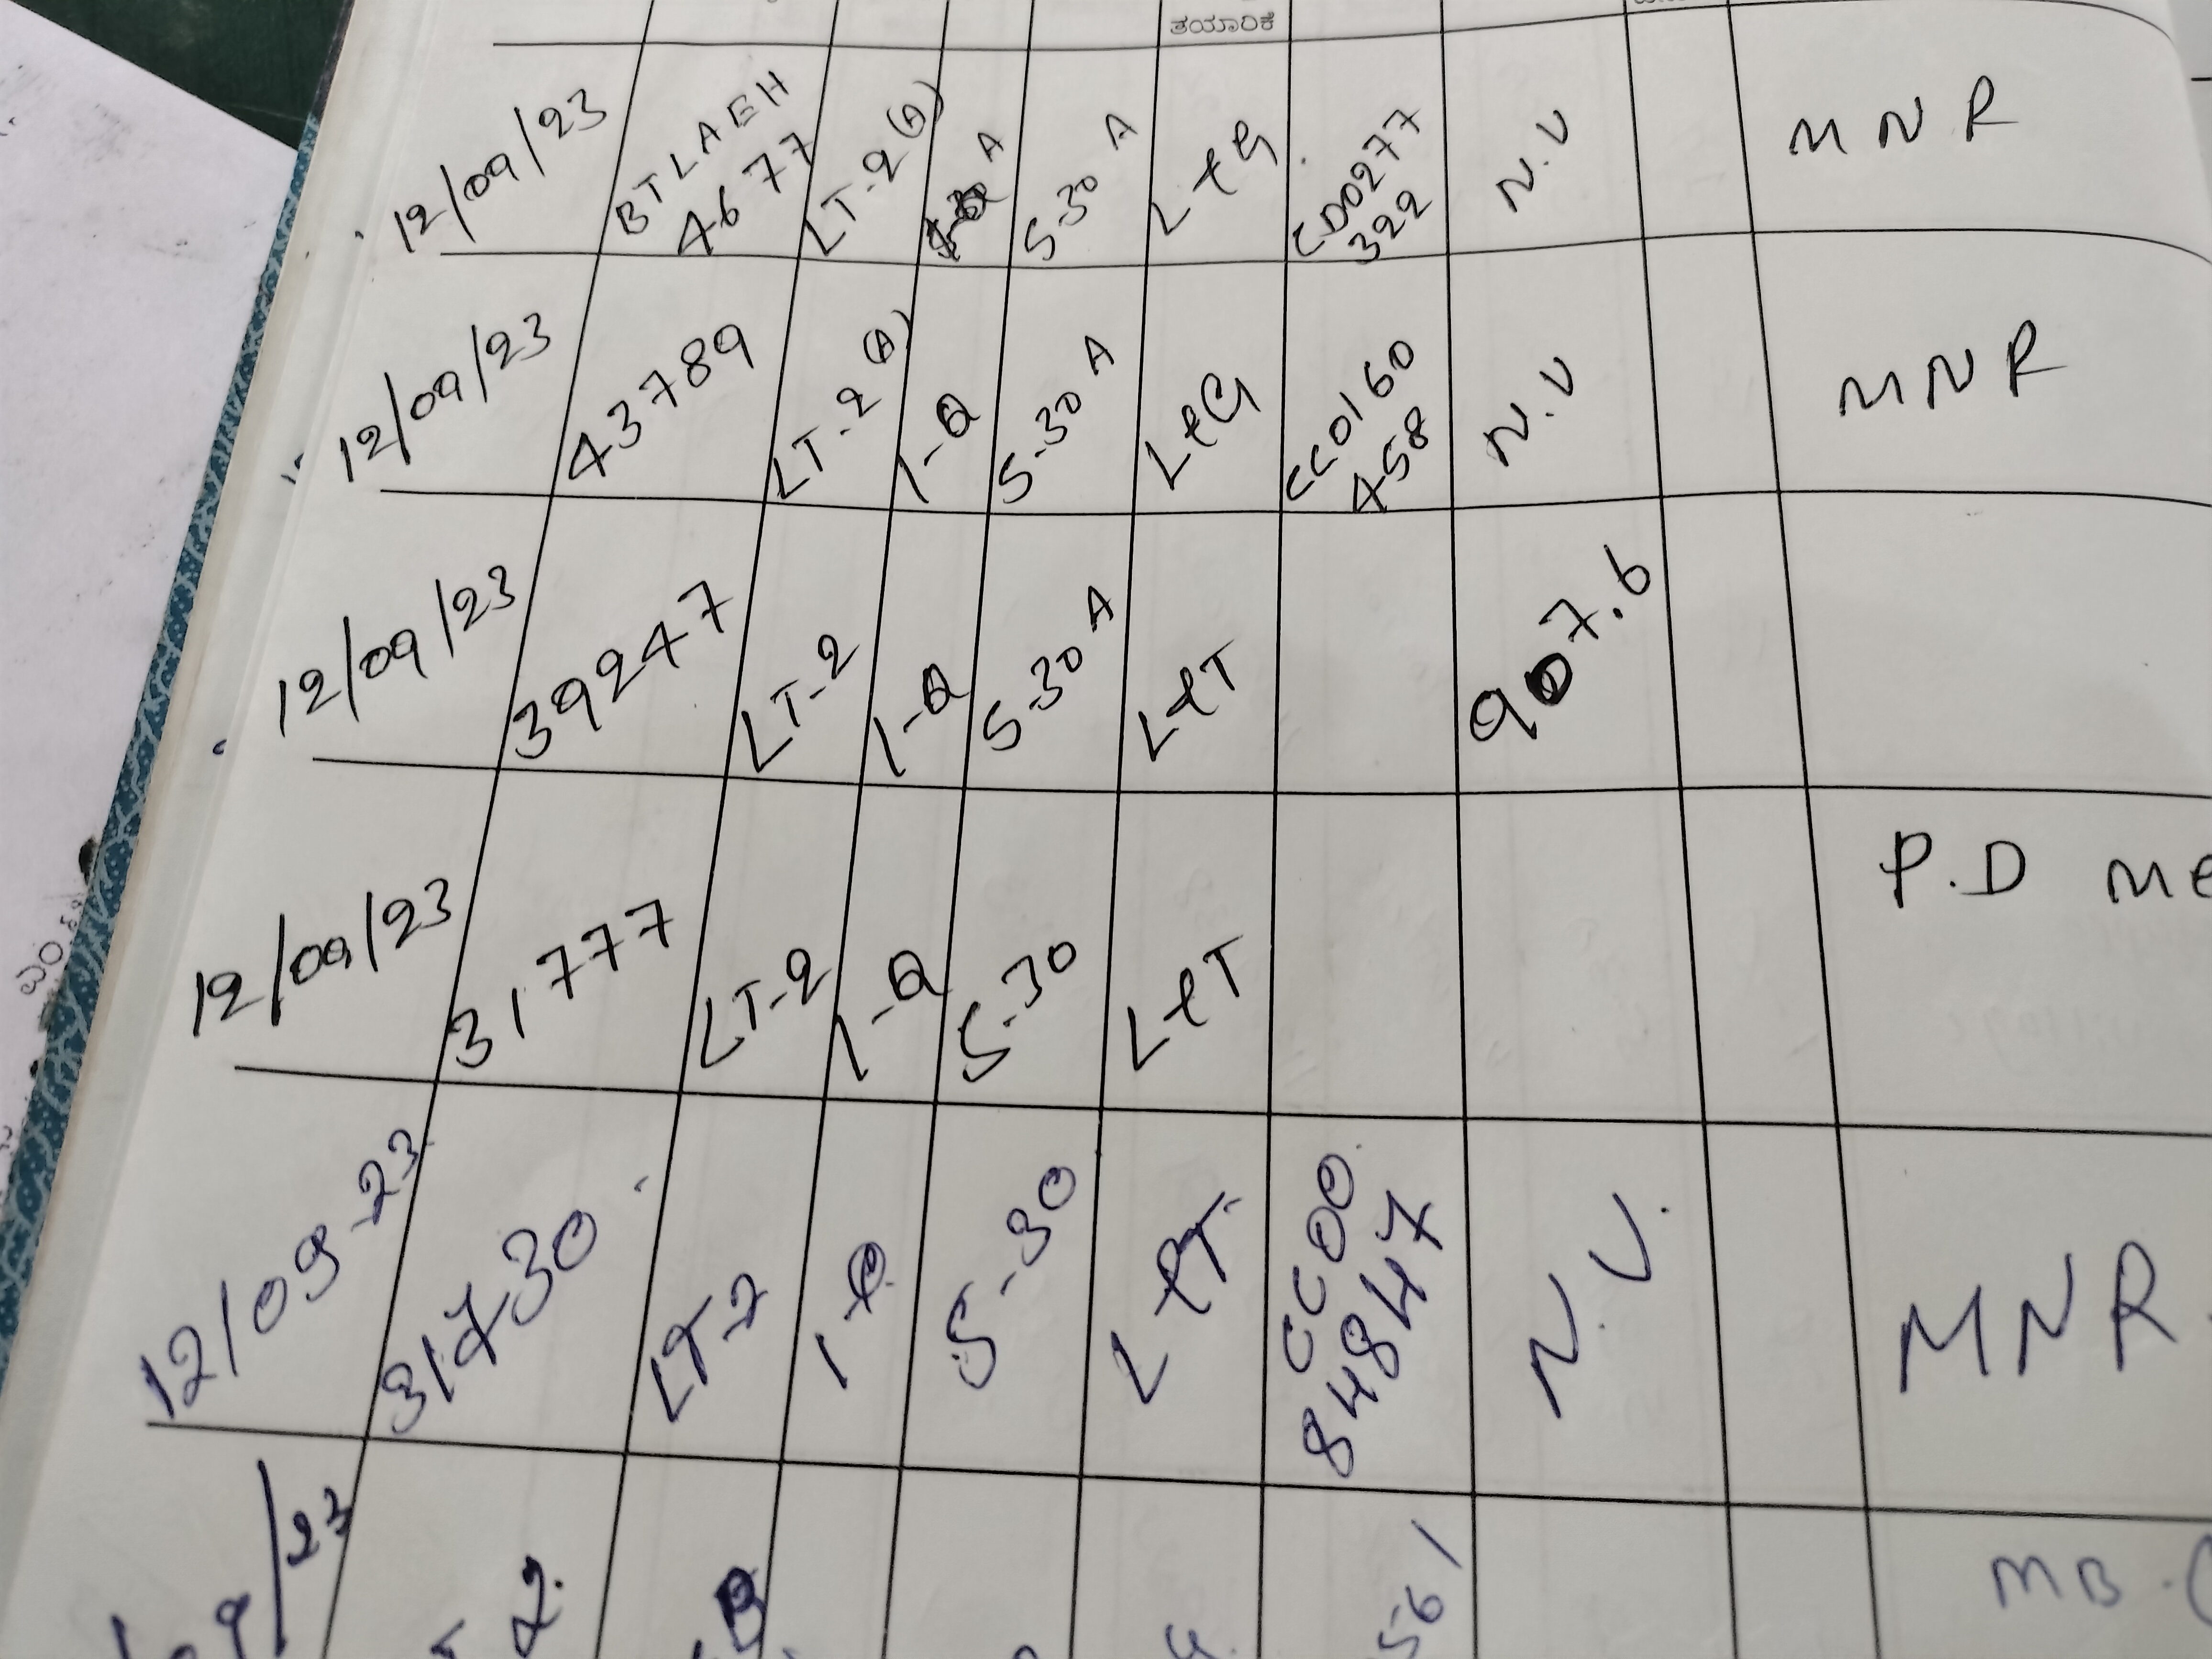 ತಯಾರಿಕೆ
12/09/23 BTLAEH 4677 LT-2(A) A 5-30 A L&G CD0277 322 N.V MNR
12/09/23 43789 LT-2(A) 1-Q 5-30 A L&G CC0160 458 N.V MNR
12/09/23 39247 LT-2 1-Q 5-30 A L&T 907.6
12/09/23 31777 LT-2 1-Q 5-30 L&T P.D
12/09-23 31730 LT-2 1-Q 5-30 L&T CC00 84847 N.V. MNR.
09/23 2 561 MB.